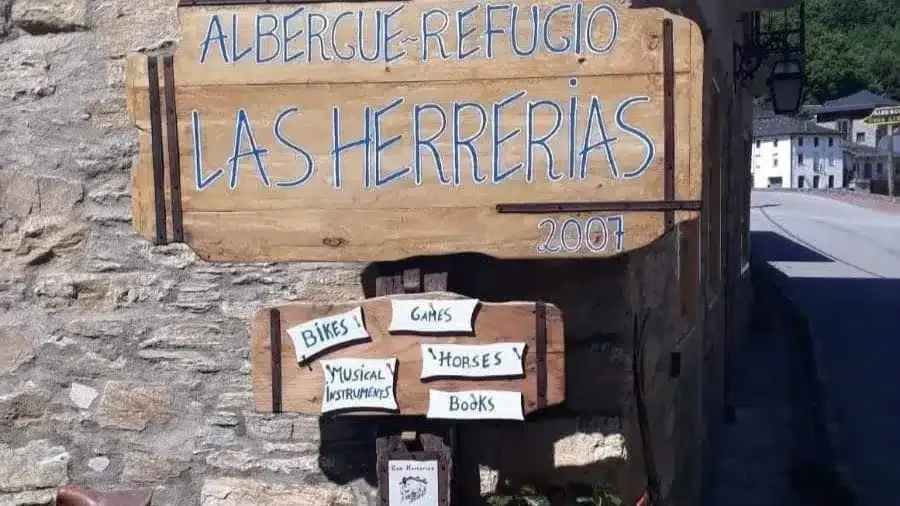 ALBERGUE-REFUGIO
LAS HERRERIAS
2007
BIKES
GAMES
MUSICAL
INSTRUMENTS
HORSES
BOOKS